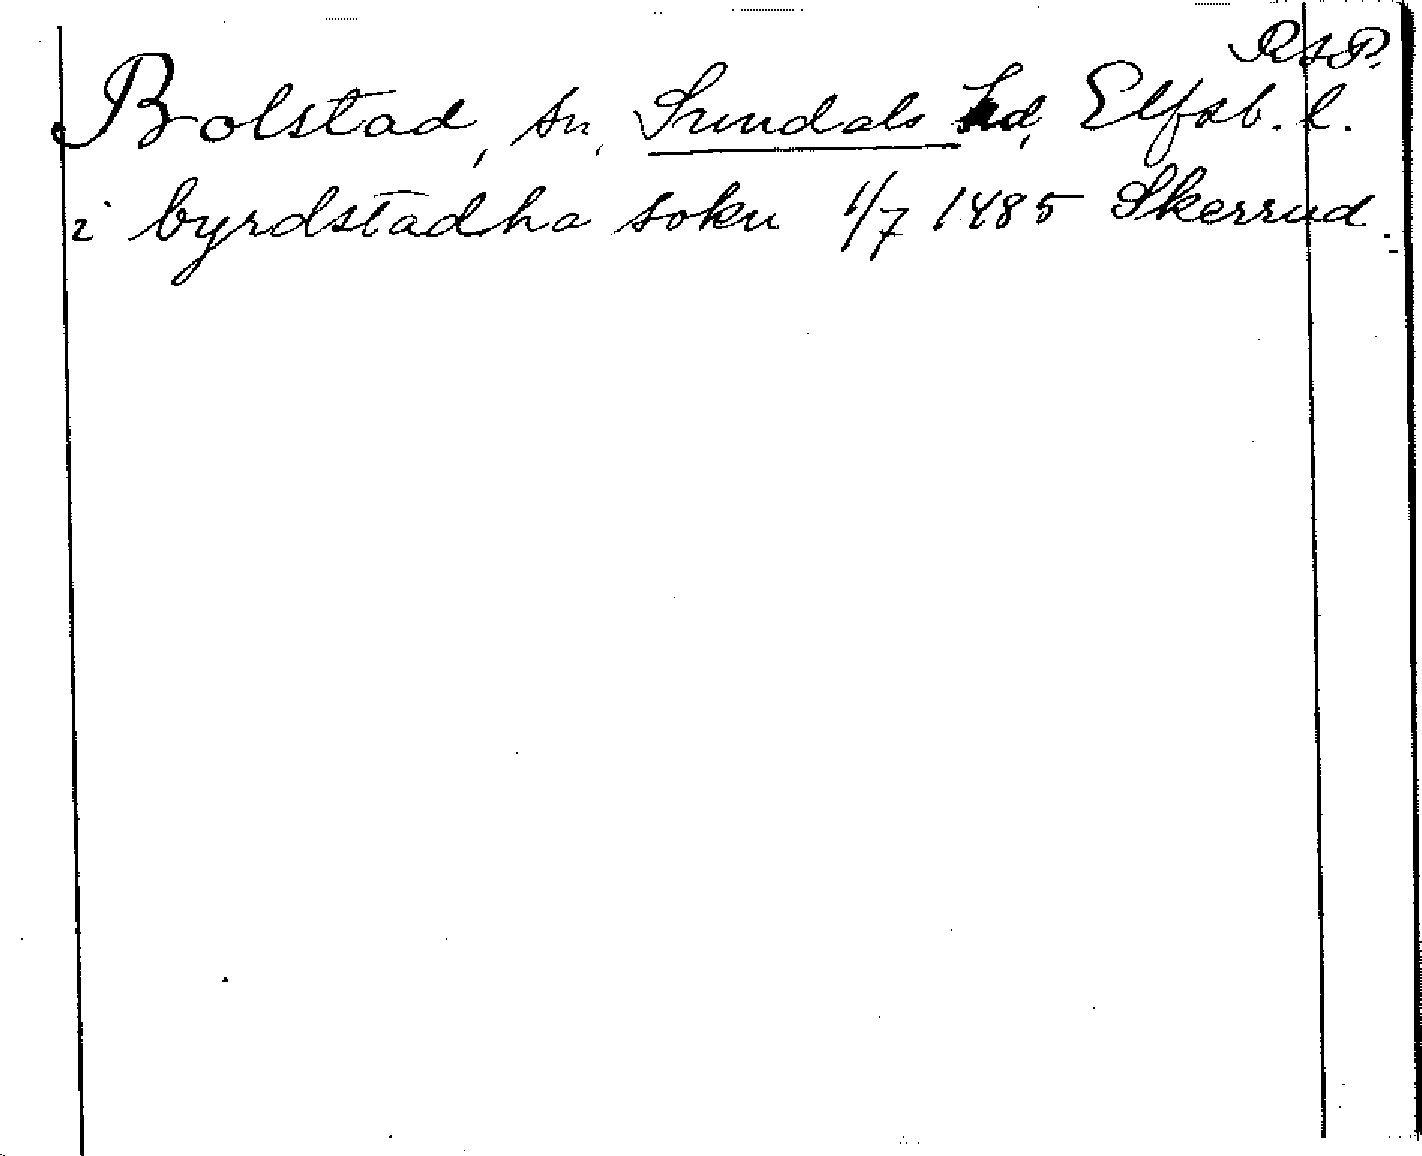 RAP.
Bolstad, sn, Sundals hd, Elfsb. l.
i byrdstadha sokn 1/7 1485 Skerrud.